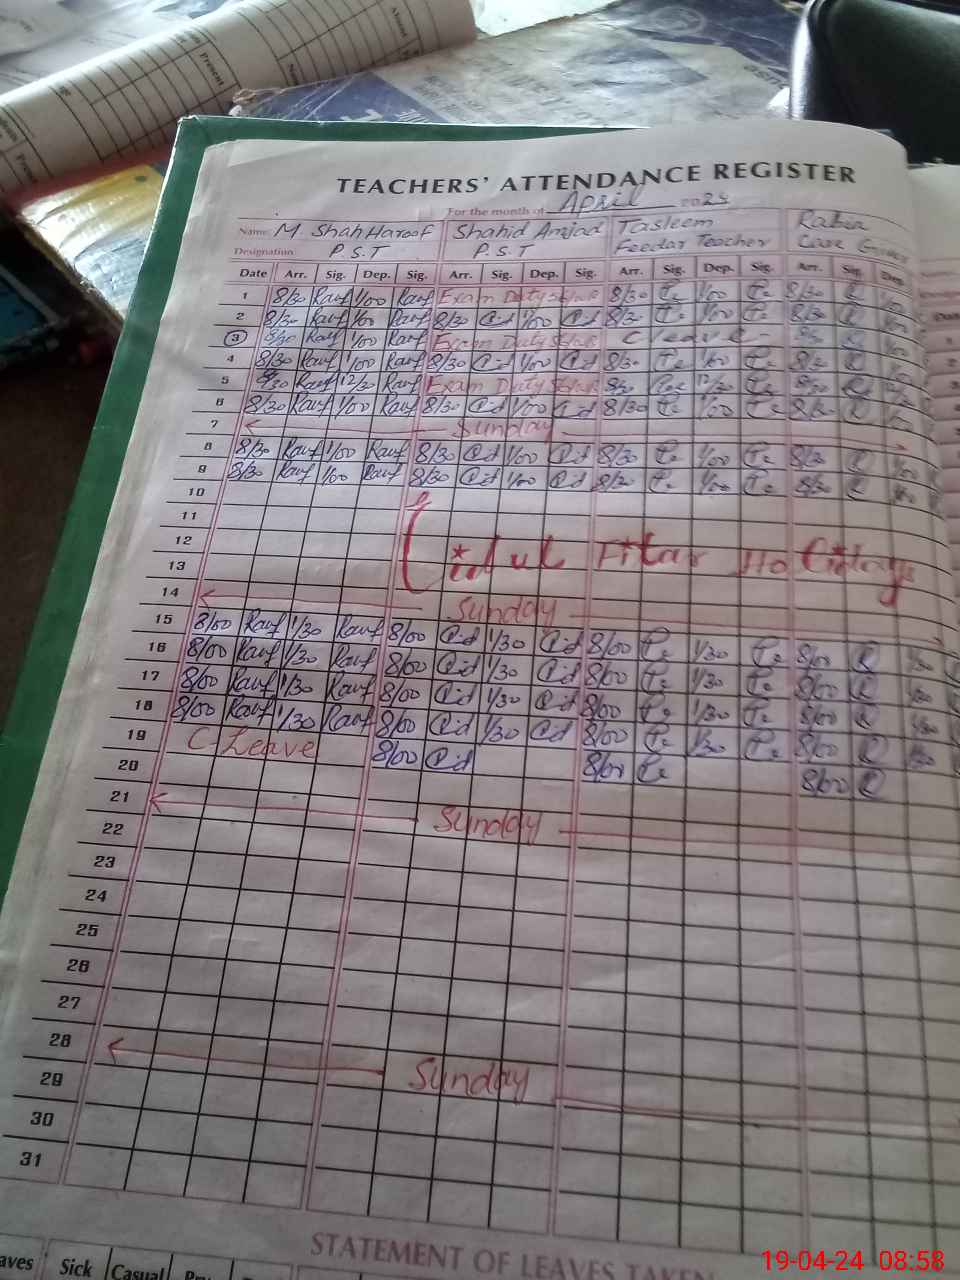 Present
Present
TEACHERS' ATTENDANCE REGISTER
For the month of April 2024
Name: M Shah Haroof Shahid Amjad Tasleem Rabia
Designation: P.S.T P.S.T Feedar Teacher Care
Date Arr. Sig. Dep. Sig. Arr. Sig. Dep. Sig. Arr. Sig. Dep. Sig. Arr. Sig. Dep.
1 8/30 Rauf 1/00 Rauf Exam Duty 8/30 1/00 8/30 R 1/00
2 8/30 Rauf 1/00 Rauf 8/30 1/00 8/30 1/00 8/30 R 1/00
3 8/30 Rauf 1/00 Rauf Exam Duty C leave 1/00
4 8/30 Rauf 1/00 Rauf 8/30 1/00 8/30 1/00 8/30 R 1/00
5 8/30 Rauf 12/30 Rauf Exam Duty 8/30 12/30 8/30 R
6 8/30 Rauf 1/00 Rauf 8/30 1/00 8/30 1/00 8/30 R
7 Sunday
8 8/30 Rauf 1/00 Rauf 8/30 1/00 8/30 1/00 8/30 R 1/00
9 8/30 Rauf 1/00 Rauf 8/30 1/00 8/30 1/00 8/30 R
10
11
12 Eidul Fitar Holidays
13
14 Sunday
15 8/00 Rauf 1/30 Rauf 8/00 1/30 8/00 1/30 8/00 R 1/30
16 8/00 Rauf 1/30 Rauf 8/00 1/30 8/00 1/30 8/00 R
17 8/00 Rauf 1/30 Rauf 8/00 1/30 8/00 1/30 8/00 R
18 8/00 Rauf 1/30 Rauf 8/00 1/30 8/00 1/30 8/00 R
19 C-Leave 8/00 8/00 8/00 R
20
21 Sunday
22
23
24
25
26
27
28 Sunday
29
30
31
STATEMENT OF LEAVES TAKEN
Sick Casual
19-04-24 08:58